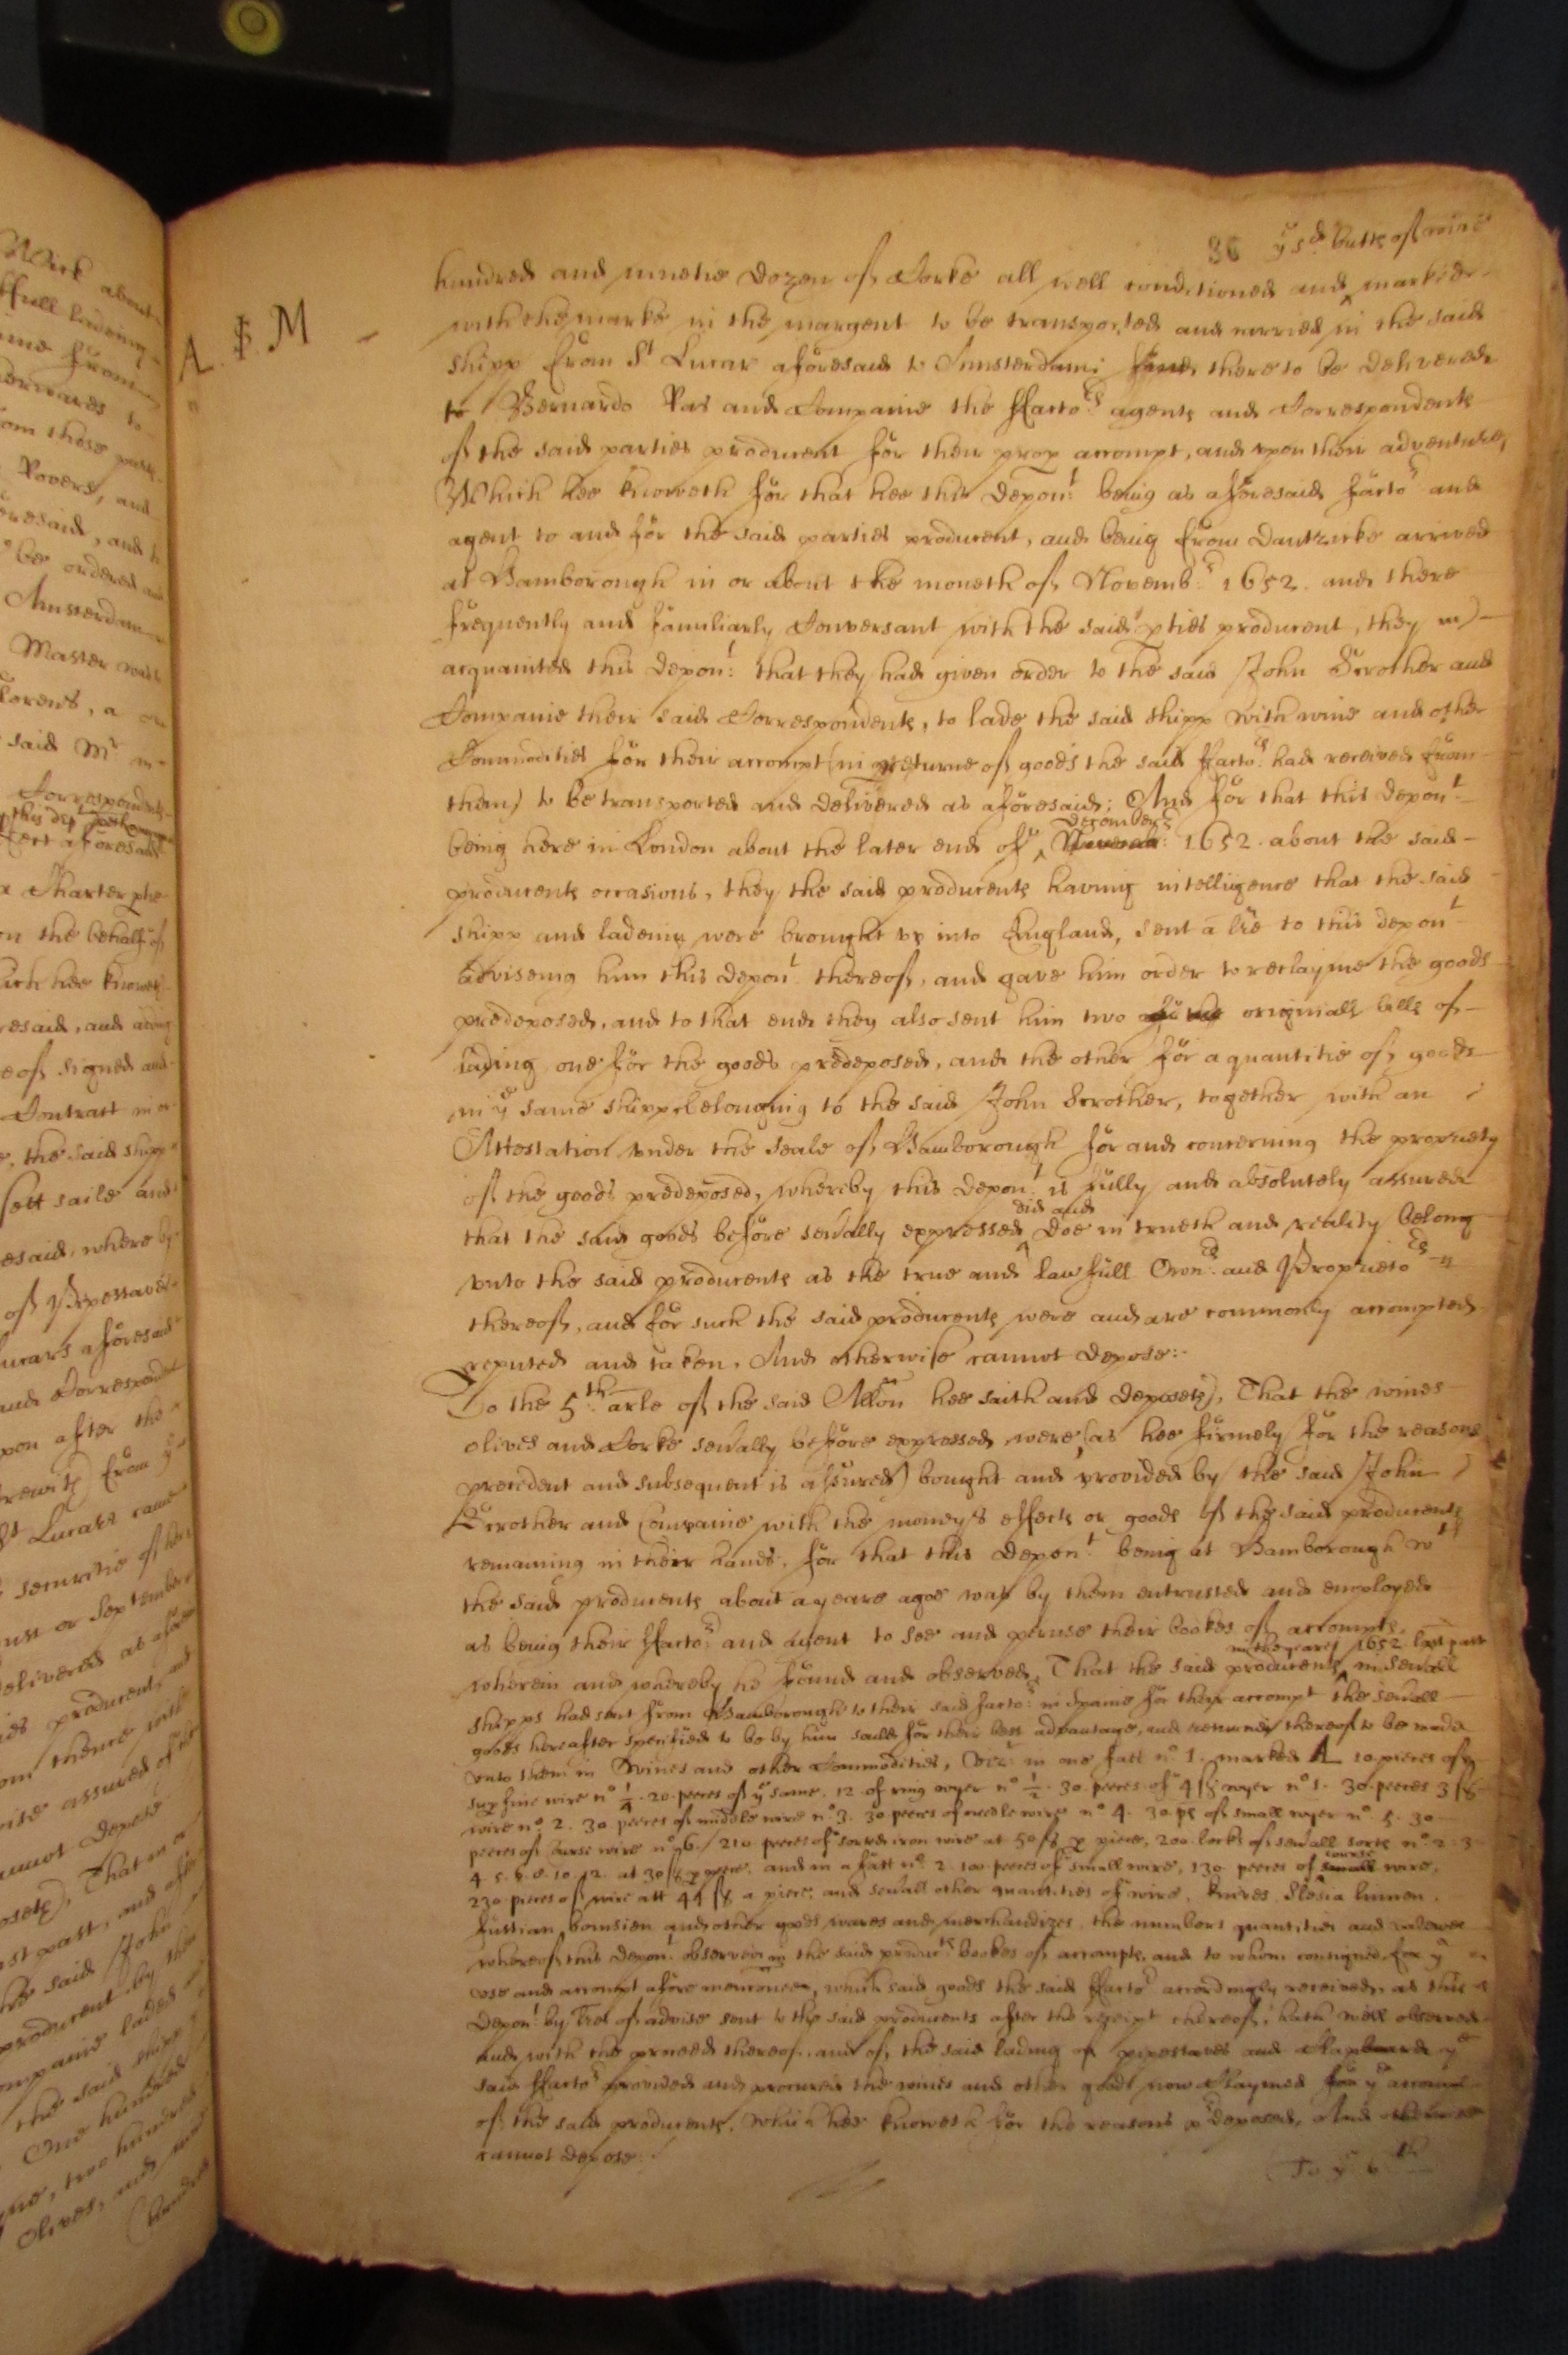 36 ye sd butts of wine
hundred and ninetie dozen of Corke all well conditioned and marked
A. B. M
with the marke in the margent to be transported and carried in the said
shipp from St Lucar aforesaid to Amsterdam; there to be delivered
to Bernardo Vas and Companie the ffactors agents and Correspondents
of the said parties producent for their prop accompt, and upon their adventure,
Which hee knoweth for that hee this Depont being as aforesaid factor and
agent to and for the said parties producent, and being from Dantzicke arrived
at Hamborough in or about the moneth of Novembr 1652. and there
frequently and familiarly Conversant with the said pties producent, they
acquainted this Depont that they had given order to the said John Strother and
Companie their said Correspondents, to lade the said shipp with wine and other
Commodities for their accompt (in returne of goods the said ffactors had received from
them) to be transported and delivered as aforesaid; And for that this Depont
being here in London about the later end of December 1652. about the said
producents occasions, they the said producents having intelligence that the said
shipp and ladeing were brought up into England, sent a lre to this depont
adviseing him this Depont thereof, and gave him order to reclayme the goods
predeposed, and to that end they also sent him two originall bills of
lading one for the goods predeposed, and the other for a quantitie of goods
in ye same shipp belonging to the said John Strother, together with an
Attestation under the seale of Hamborough for and concerning the propriety
of the goods predeposed, whereby this Depont is fully and absolutely assured
that the said goods before severally expressed did and Doe in trueth and reality belong
unto the said producents as the true and lawfull Owners and Proprietors
thereof, and for such the said producents were and are commonly accompted
reputed and taken, And otherwise cannot depose:-
To the 5th arle of the said Allon hee saith and deposeth, That the wines
olives and Corke severally before expressed were (as hee firmely for the reasons
precedent and subsequent is assured) bought and provided by the said John
Strother and Companie with the moneys effects or goods of the said producents
remaining in their hands, for that this Depont being at Hamborough wth
the said producents about a yeare agoe was by them entrusted and employed
as being their ffactor and agent to see and peruse their bookes of accompts,
wherein and whereby he found and observed, That the said producents in the yeare 1652 last past in severall
shipps had sent from Hamborough to their said factors in Spaine for their accompt the severall
goods hereafter specified to be by him sould for their best advantage, and returnes thereof to be made
unto them in Wines and other Commodities, Vizt in one fatt no 1. marked A 10 pieces of
supfine wire no 1/4. 20. peeces of ye same. 12 of ring wyer no 1/2. 30. peeces of 4 ß wyer no 1. 30. peeces 3 ß
wire no 2. 30 peeces of middle wire no 3. 30 peeces of needle wire no 4. 30 ps of small wyer no 5. 30
peeces of Course wire no 6. 210 peeces of sorted iron wire at 50 ß p piece, 200 locks of severall sorts no 2. 3
4. 5. 6. 8. 10. 12. at 30 ß p and in a fatt no 2. 100 peeces of small wire, 130 peeces of course wire,
230 pieces of wire att 44 ß a piece; and severall other quantities of wire, knives, Slesia linnen,
fustian, and other goods wares and merchandizes, the numbers quantities and
whereof this Depont observed in the said products bookes of accompts, and to whom consigned for ye
use and accompt afore mentioned, which said goods the said ffactors accordingly received, as this
Depont by of advise sent to the said producents after the receipt thereof, hath well observed
and with the proceed thereof, and of the said lading of pipestaves and Clapboard ye
said ffactors provided and procured the wines and other goods now Claymed for ye accompt
of the said producents, Which hee knoweth for the reasons pdeposed, And otherwise
cannot depose
To ye 6th